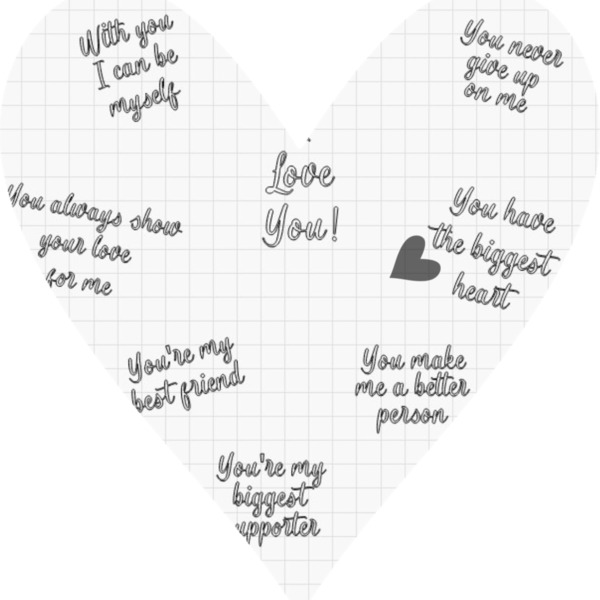 With you
I can be
myself
You never
give up
on me
Love
You!
You always show
your love
for me
You have
the biggest
heart
You're my
best friend
You make
me a better
person
You're my
biggest
upporter